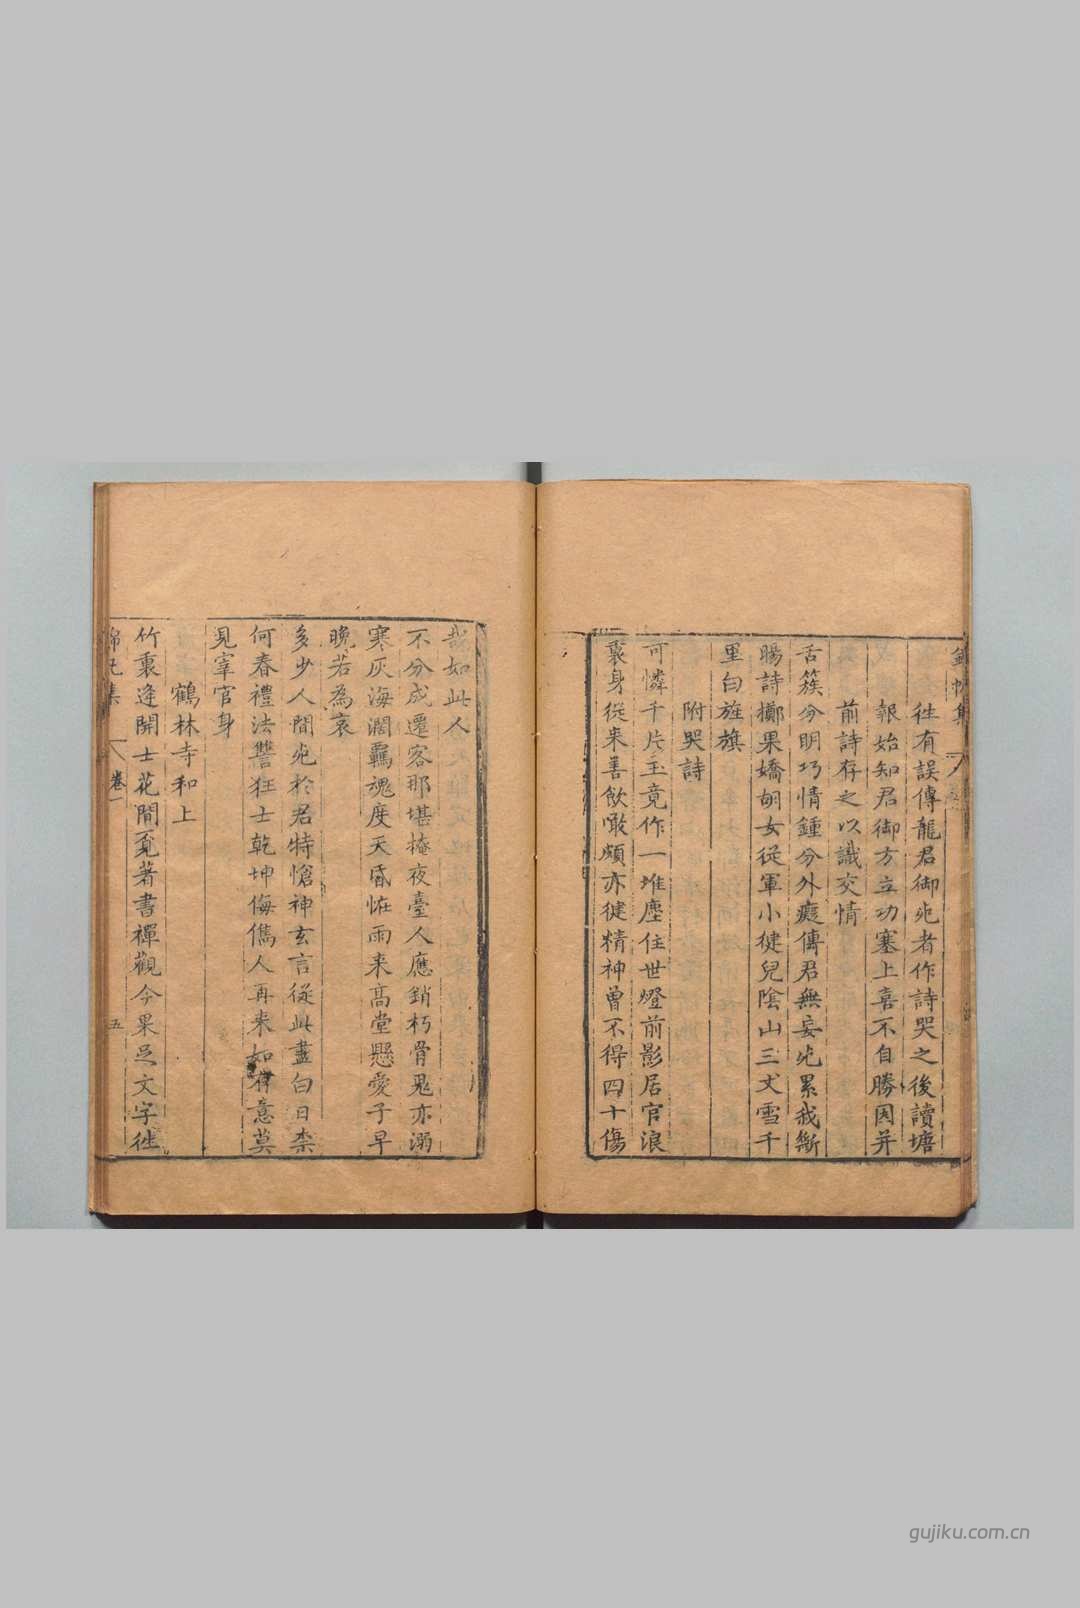 往有誤傳龍君御死者作詩哭之後讀塘
報始知君御方立功塞上喜不自勝因并
前詩存之以識交情
舌簇分明巧情鍾分外癡傳君無妄死累我斷
腸詩擲果嬌胡女從軍小健兒陰山三丈雪千
里白旌旗
附哭詩
可憐千片玉竟作一堆塵住世燈前影居官浪
裏身從来善飲噉頗亦健精神曾不得四十傷
哉如此人
不分成遷客那堪掩夜臺人應銷朽骨鬼亦溺
寒灰海濶羈魂度天昏恠雨来髙堂懸愛子早
晚若為哀
多少人間死於君特愴神玄言從此盡白日柰
何春禮法讐狂士乾坤侮儁人再来如有意莫
見宰官身
鶴林寺和上
竹裏逢開士花間覔著書禪觀今果足文字徃
錦帆集
卷一
五
gujiku.com.cn